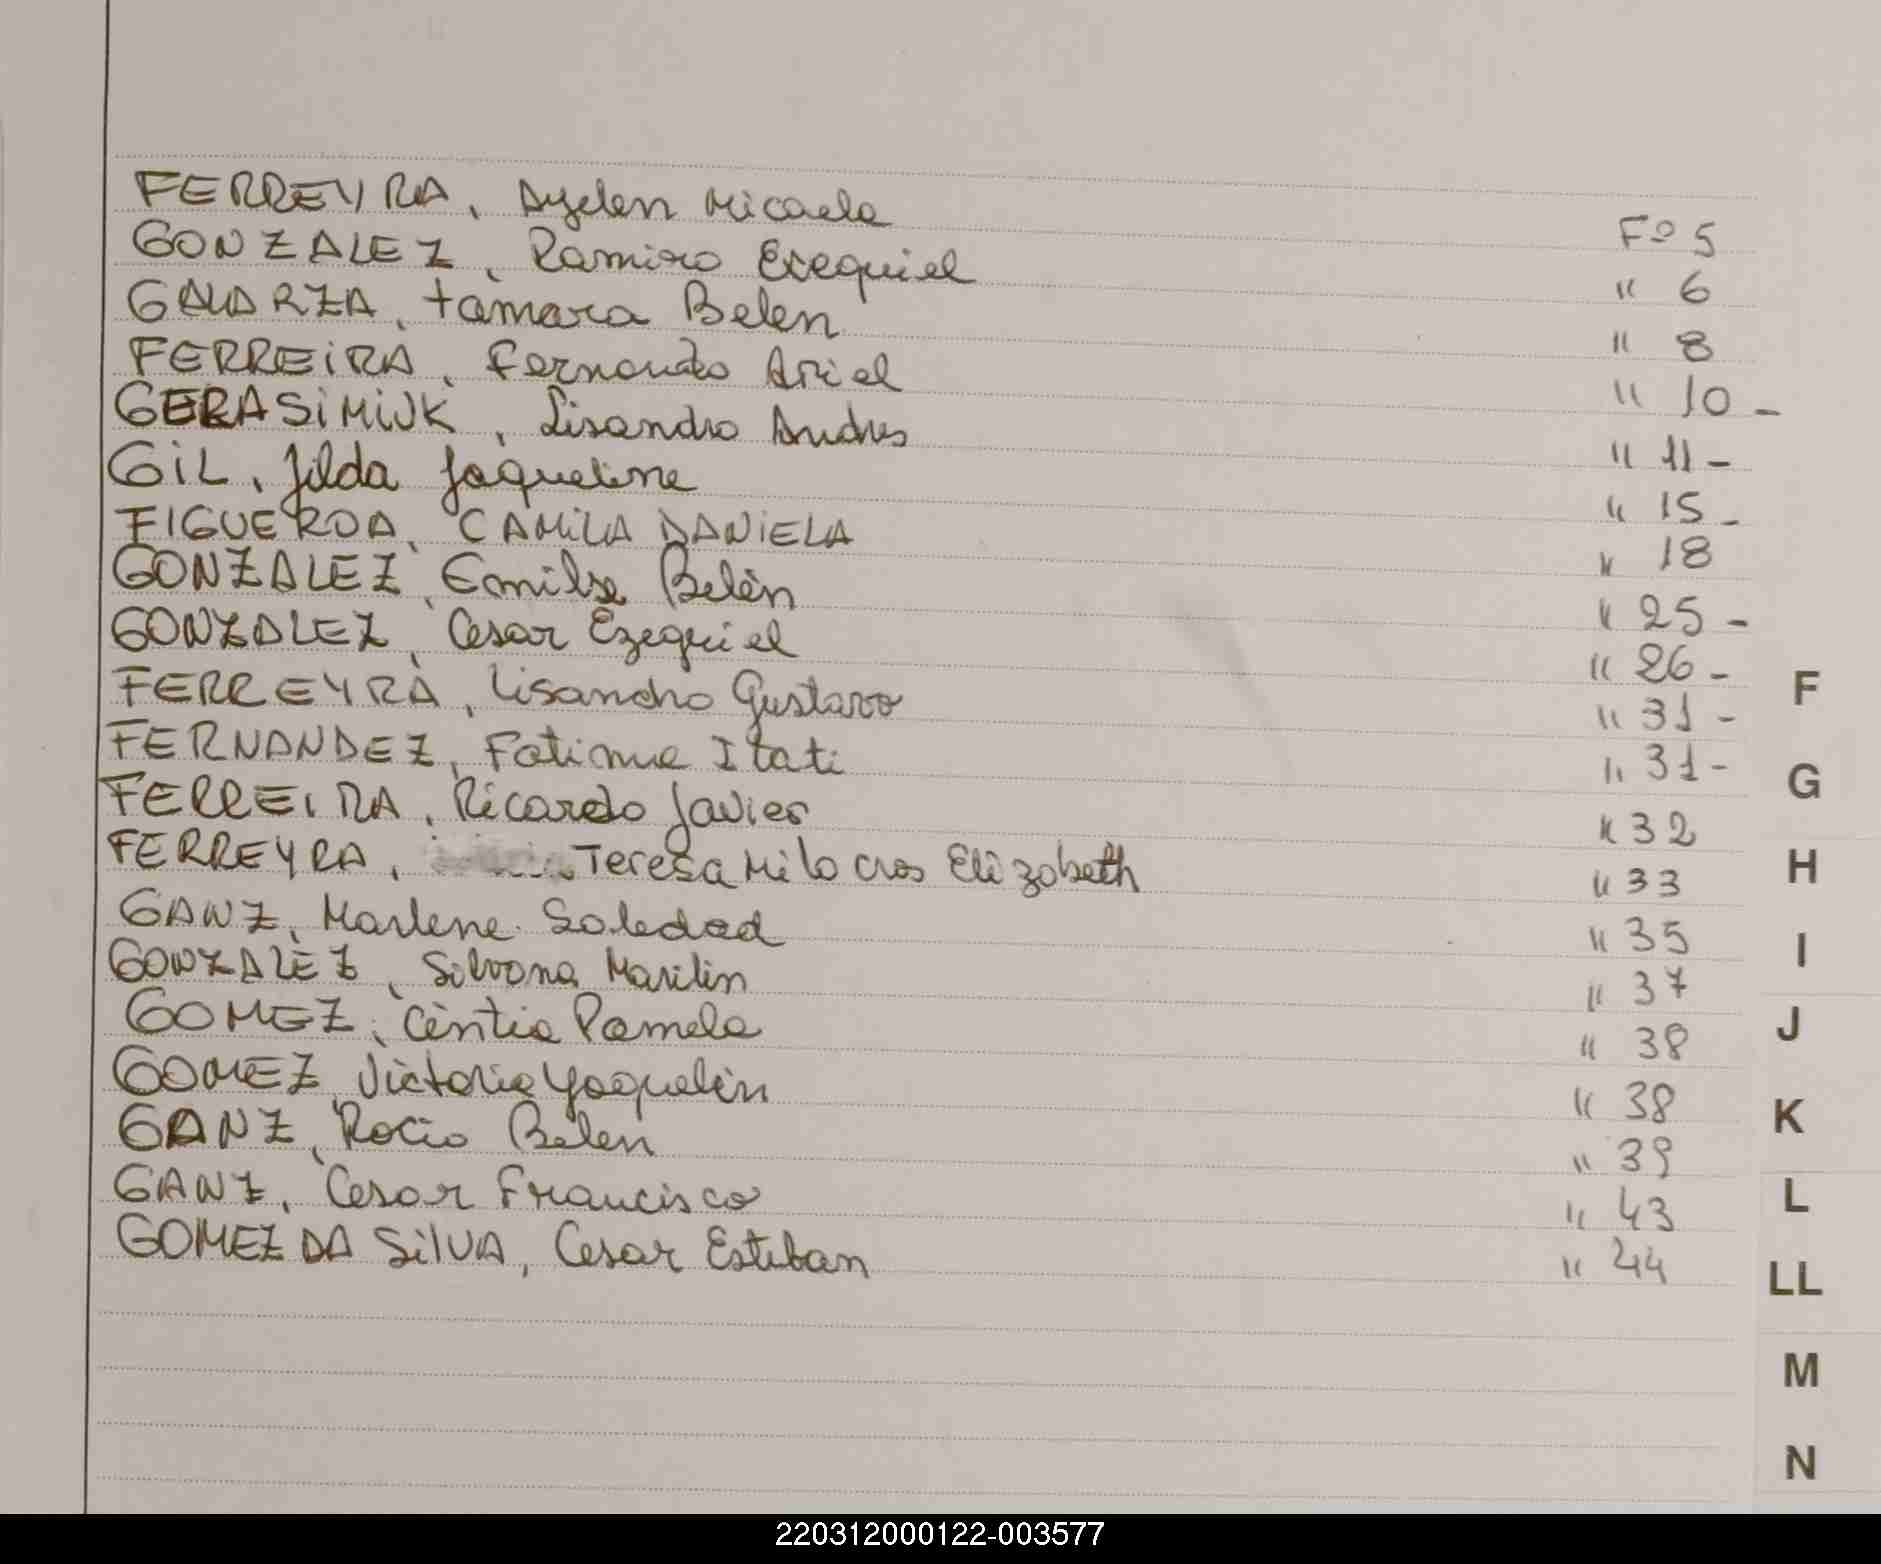 FERREYRA, Ayelen Micaela Fº 5
GONZALEZ, Ramiro Exequiel " 6
GALARZA, tamara Belen " 8
FERREIRA, Fernando Ariel " 10 -
GERASIMIUK, Lisandro Andres " 11 -
GIL, Jilda Jaqueline " 15 -
FIGUEROA, CAMILA DANIELA " 18
GONZALEZ, Emilse Belén " 25 -
GONZALEZ, Cesar Ezequiel " 26 -
FERREYRA, Lisandro Gustavo " 31 -
FERNANDEZ, Fatima Itati " 31 -
FERREIRA, Ricardo Javier " 32
FERREYRA, Teresa Milagros Elizabeth " 33
GANZ, Marlene Soledad " 35
GONZALEZ, Silvana Marilin " 37
GOMEZ, Cintia Pamela " 38
GOMEZ, Victoria Yaquelin " 38
GANZ, Rocio Belen " 39
GANZ, Cesar Francisco " 43
GOMEZ DA SILVA, Cesar Esteban " 44
F
G
H
I
J
K
L
LL
M
N
220312000122-003577